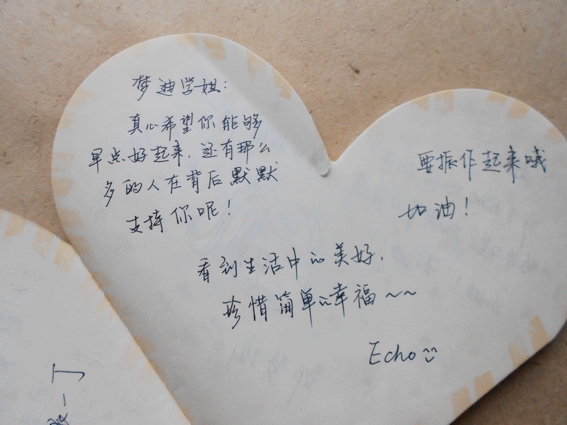 梦迪学姐：
真心希望你能够
早点好起来，还有那么
多的人在背后默默
支持你呢！
要振作起来哦
加油！
看到生活中的美好，
珍惜简单的幸福～～
Echo